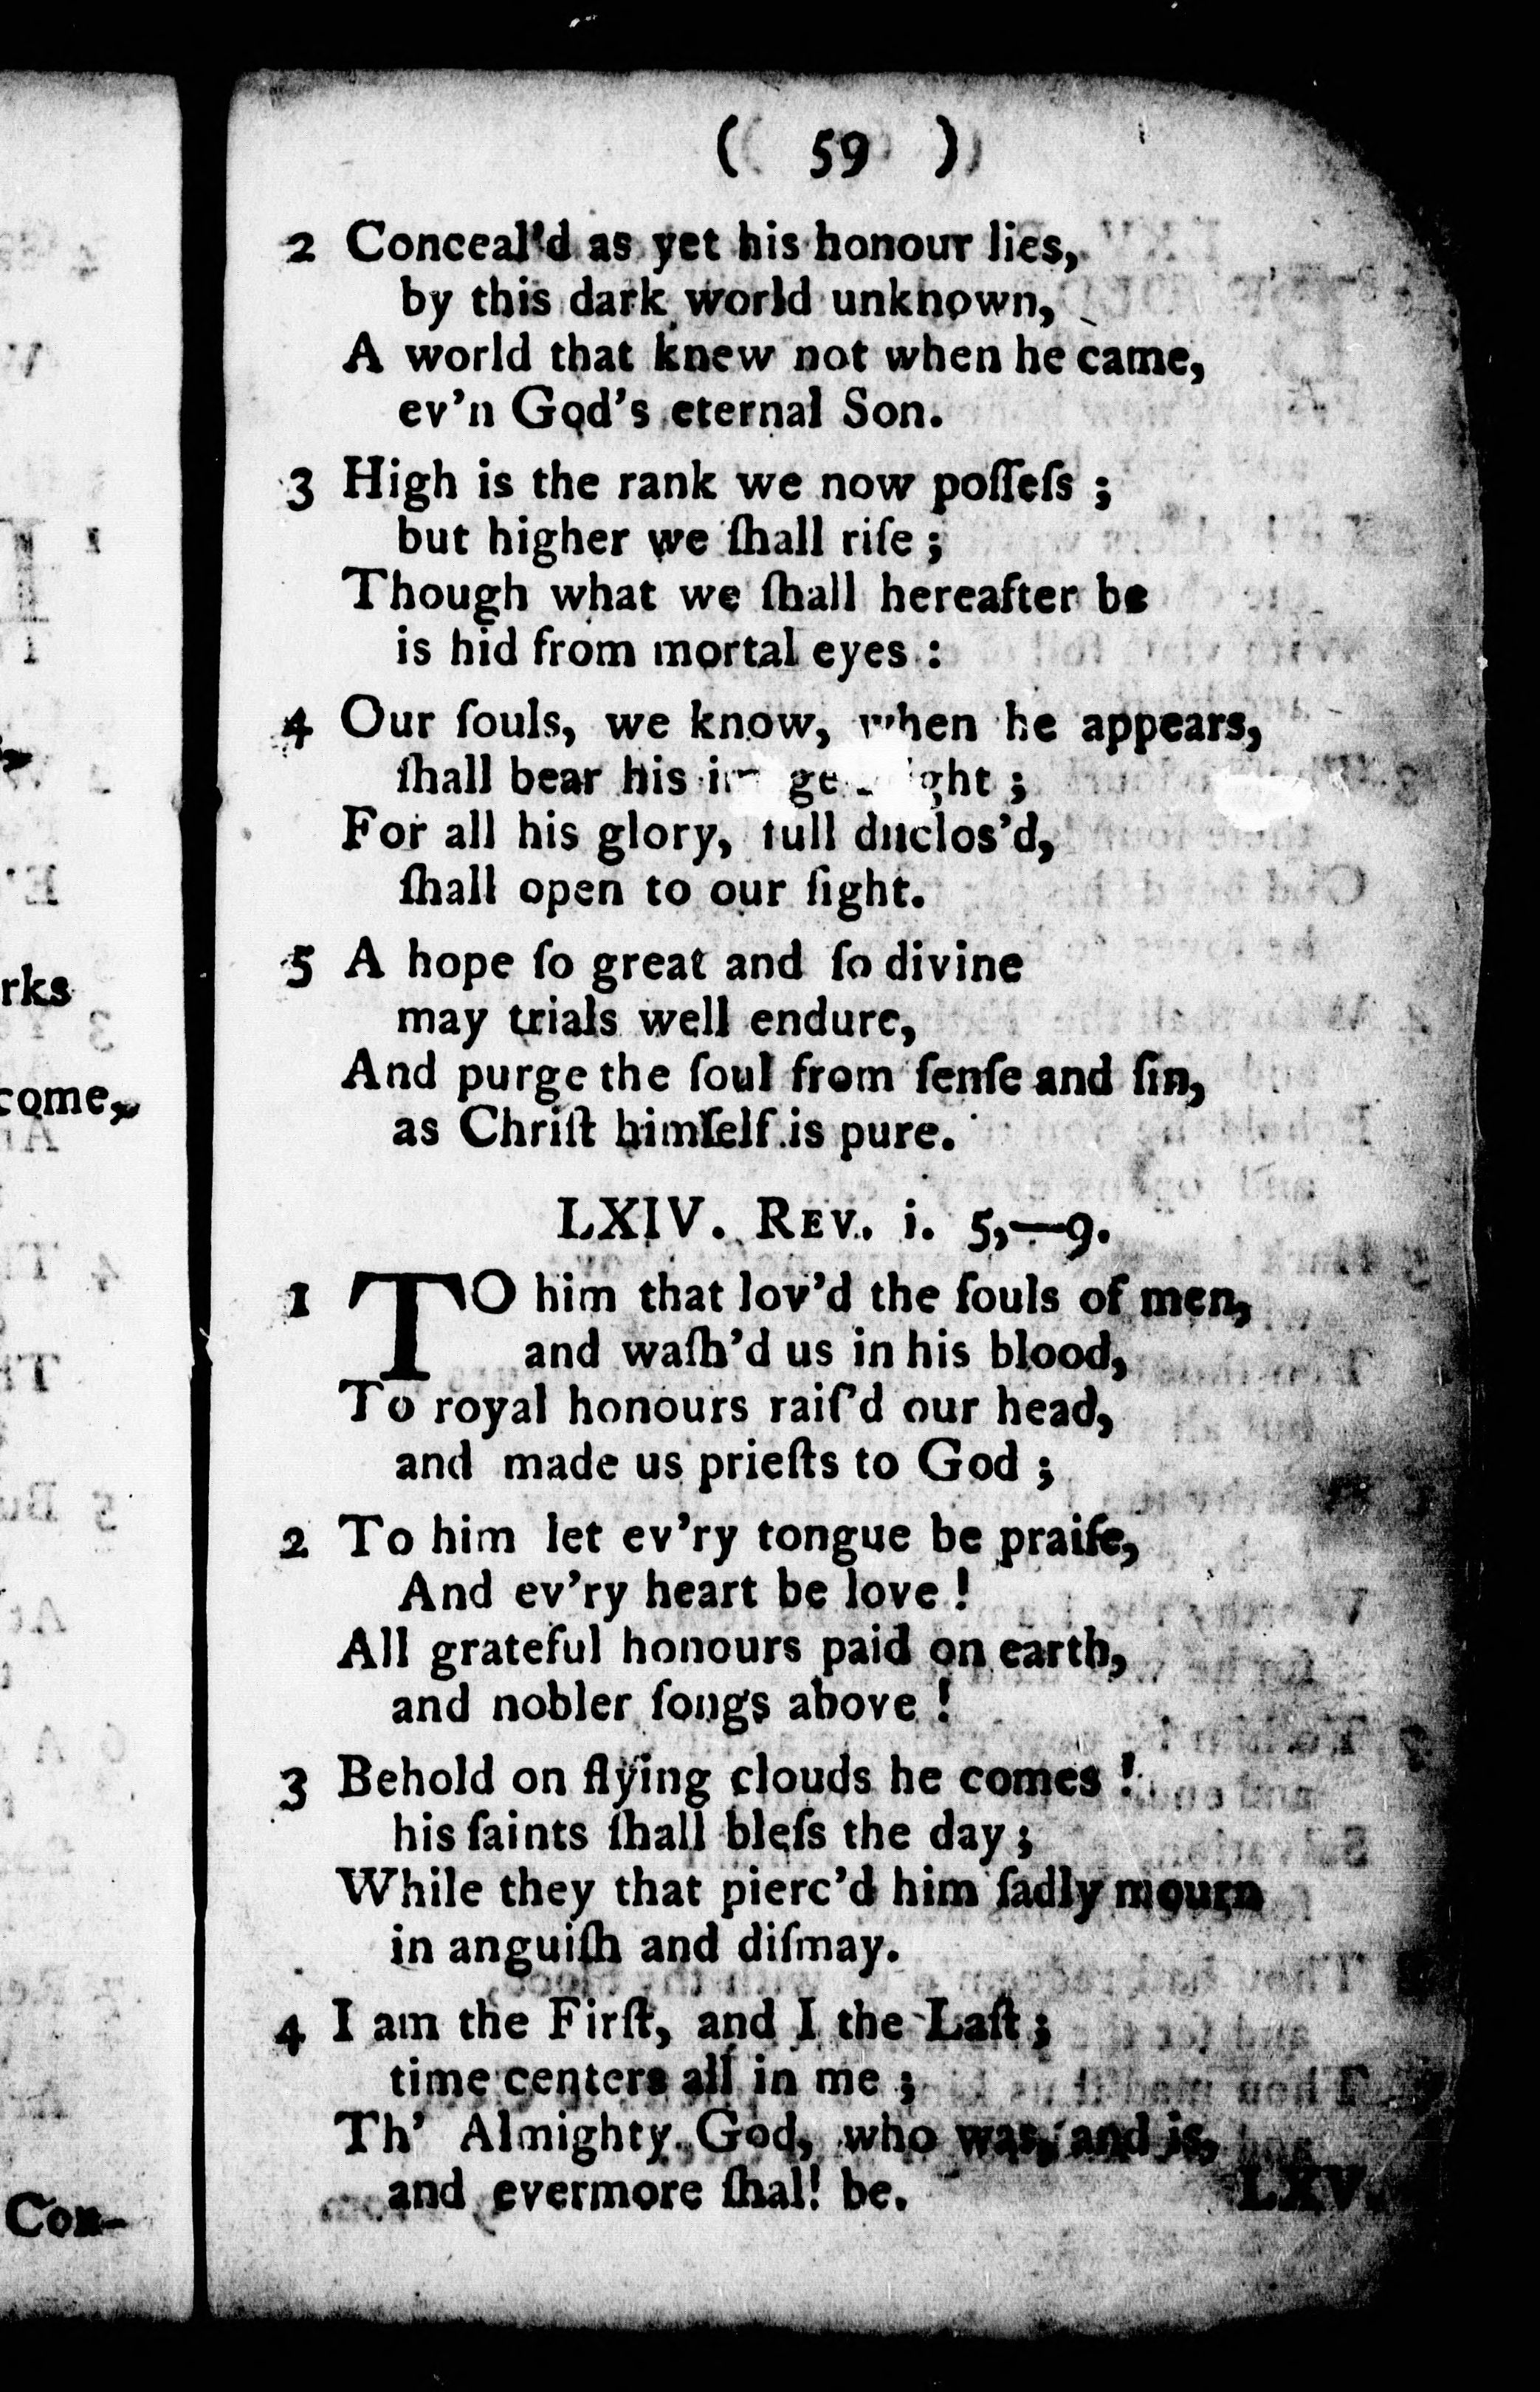 ( 59 )
2 Conceal'd as yet his honour lies,
by this dark world unknown,
A world that knew not when he came,
ev'n God's eternal Son.
3 High is the rank we now poſſeſs ;
but higher we ſhall riſe ;
Though what we ſhall hereafter be
is hid from mortal eyes :
4 Our ſouls, we know, when he appears,
ſhall bear his ;
For all his glory, full diſclos'd,
ſhall open to our ſight.
5 A hope ſo great and ſo divine
may trials well endure,
And purge the ſoul from ſenſe and ſin,
as Chriſt himſelf is pure.
LXIV. REV. i. 5,—9.
1 TO him that lov'd the ſouls of men,
and waſh'd us in his blood,
To royal honours raiſ'd our head,
and made us prieſts to God ;
2 To him let ev'ry tongue be praiſe,
And ev'ry heart be love !
All grateful honours paid on earth,
and nobler ſongs above !
3 Behold on flying clouds he comes !
his ſaints ſhall bleſs the day ;
While they that pierc'd him ſadly mourn
in anguiſh and diſmay.
4 I am the Firſt, and I the Laſt ;
time centers all in me ;
Th' Almighty God, who was, and is,
and evermore ſhall be.
LXV.
rks
come,
Con-